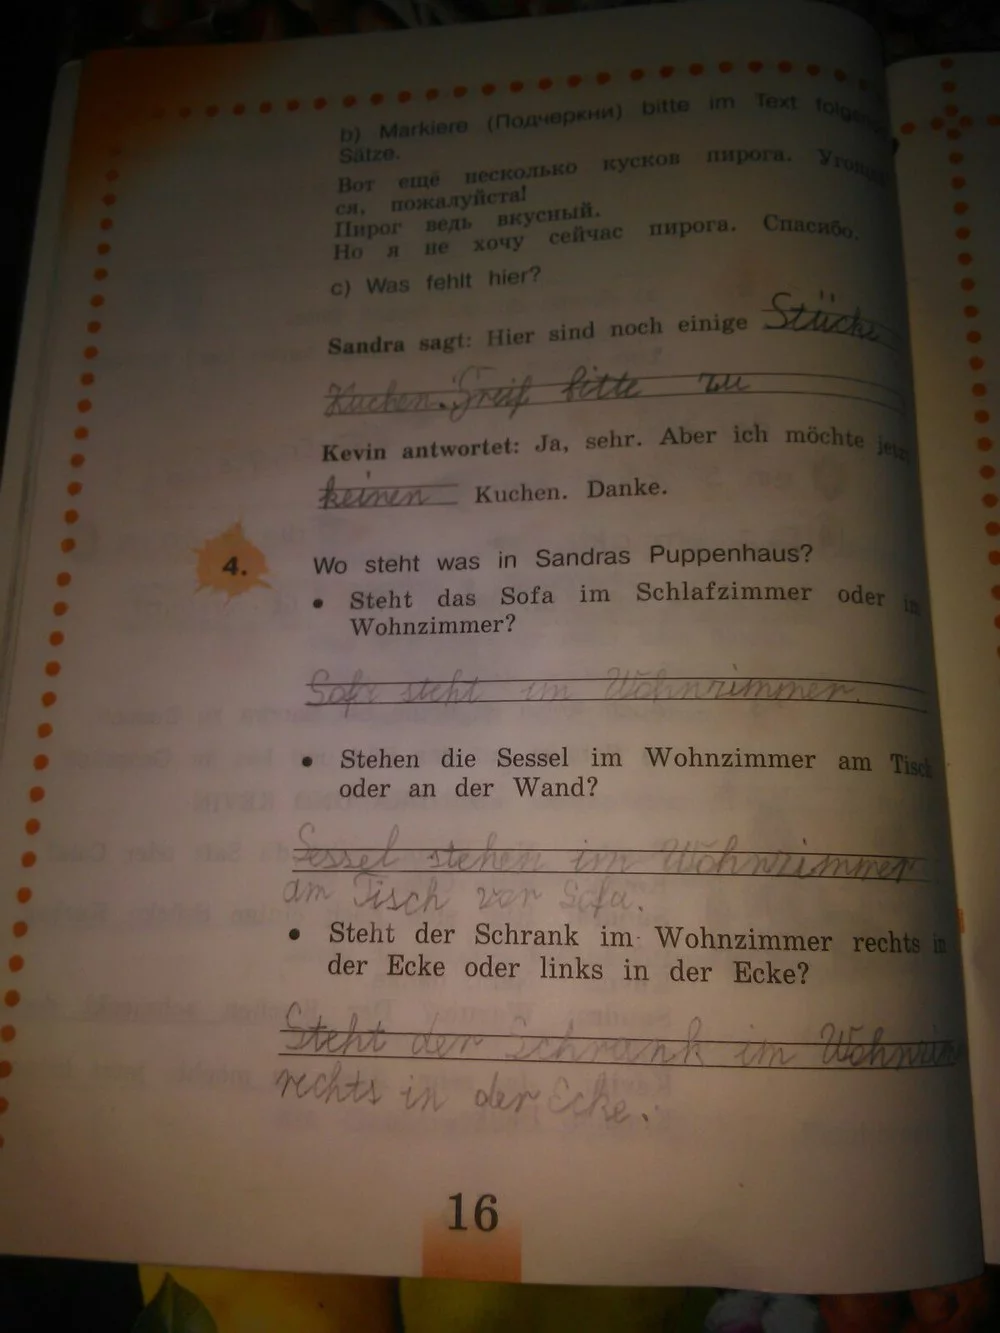 b) Markiere (Подчеркни) bitte im Text
Sätze.
Вот ещё несколько кусков пирога.
ся, пожалуйста!
Пирог ведь вкусный.
Но я не хочу сейчас пирога. Спасибо.
c) Was fehlt hier?
Sandra sagt: Hier sind noch einige Stücke
Kuchen. Greif bitte zu
Kevin antwortet: Ja, sehr. Aber ich möchte
keinen Kuchen. Danke.
4. Wo steht was in Sandras Puppenhaus?
• Steht das Sofa im Schlafzimmer oder im
Wohnzimmer?
Sofa steht im Wohnzimmer.
• Stehen die Sessel im Wohnzimmer am Tisch
oder an der Wand?
Sessel stehen im Wohnzimmer
am Tisch vor Sofa.
• Steht der Schrank im Wohnzimmer rechts in
der Ecke oder links in der Ecke?
Steht der Schrank im
rechts in der Ecke.
16